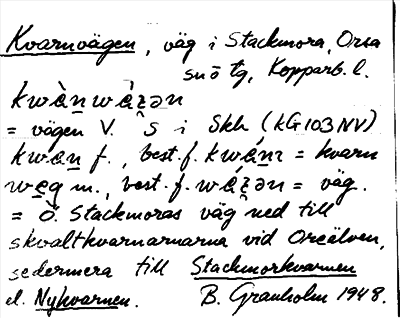 Kvarnvägen, väg i Stackmora, Orsa
sn ö tg, Kopparb. l.
kwὰ̱n̠wὰ̱ʒ̨ən
= vägen V. S i Skh (KG 103 NV)
kwæ̱n̠ f., best. f. kwǽ̱n̠ı = kvarn
wæ̱g m., best. f. wǽ̱ʒ̨ən = väg.
= Ö. Stackmoras väg ned till
skvaltkvarnarna vid Oreälven,
sedermera till Stackmorkvarnen
el. Nykvarnen. B. Granholm 1948.